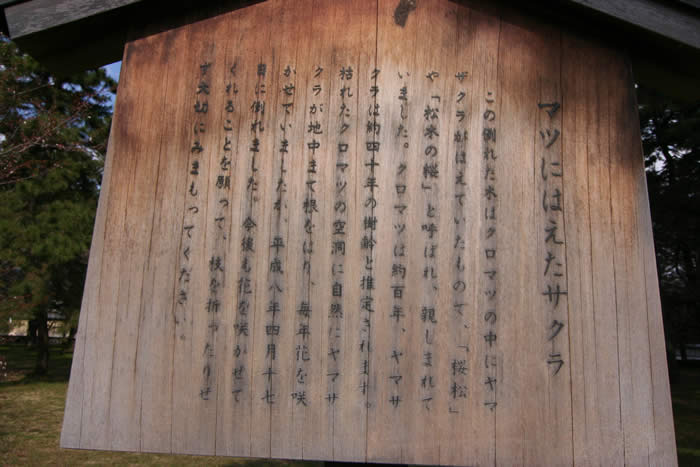 マツにはえたサクラ
この倒れた木はクロマツの中にヤマ
ザクラがはえていたもので、「桜松」
や「松木の桜」と呼ばれ、親しまれて
いました。クロマツは約百年、ヤマサ
クラは約四十年の樹齢と推定されます。
枯れたクロマツの空洞に自然にヤマサ
クラが地中まで根をはり、毎年花を咲
かせていましたが、平成八年四月十七
日に倒れました。今後も花を咲かせて
くれることを願って、枝を折ったりせ
ず大切にみまもってください。